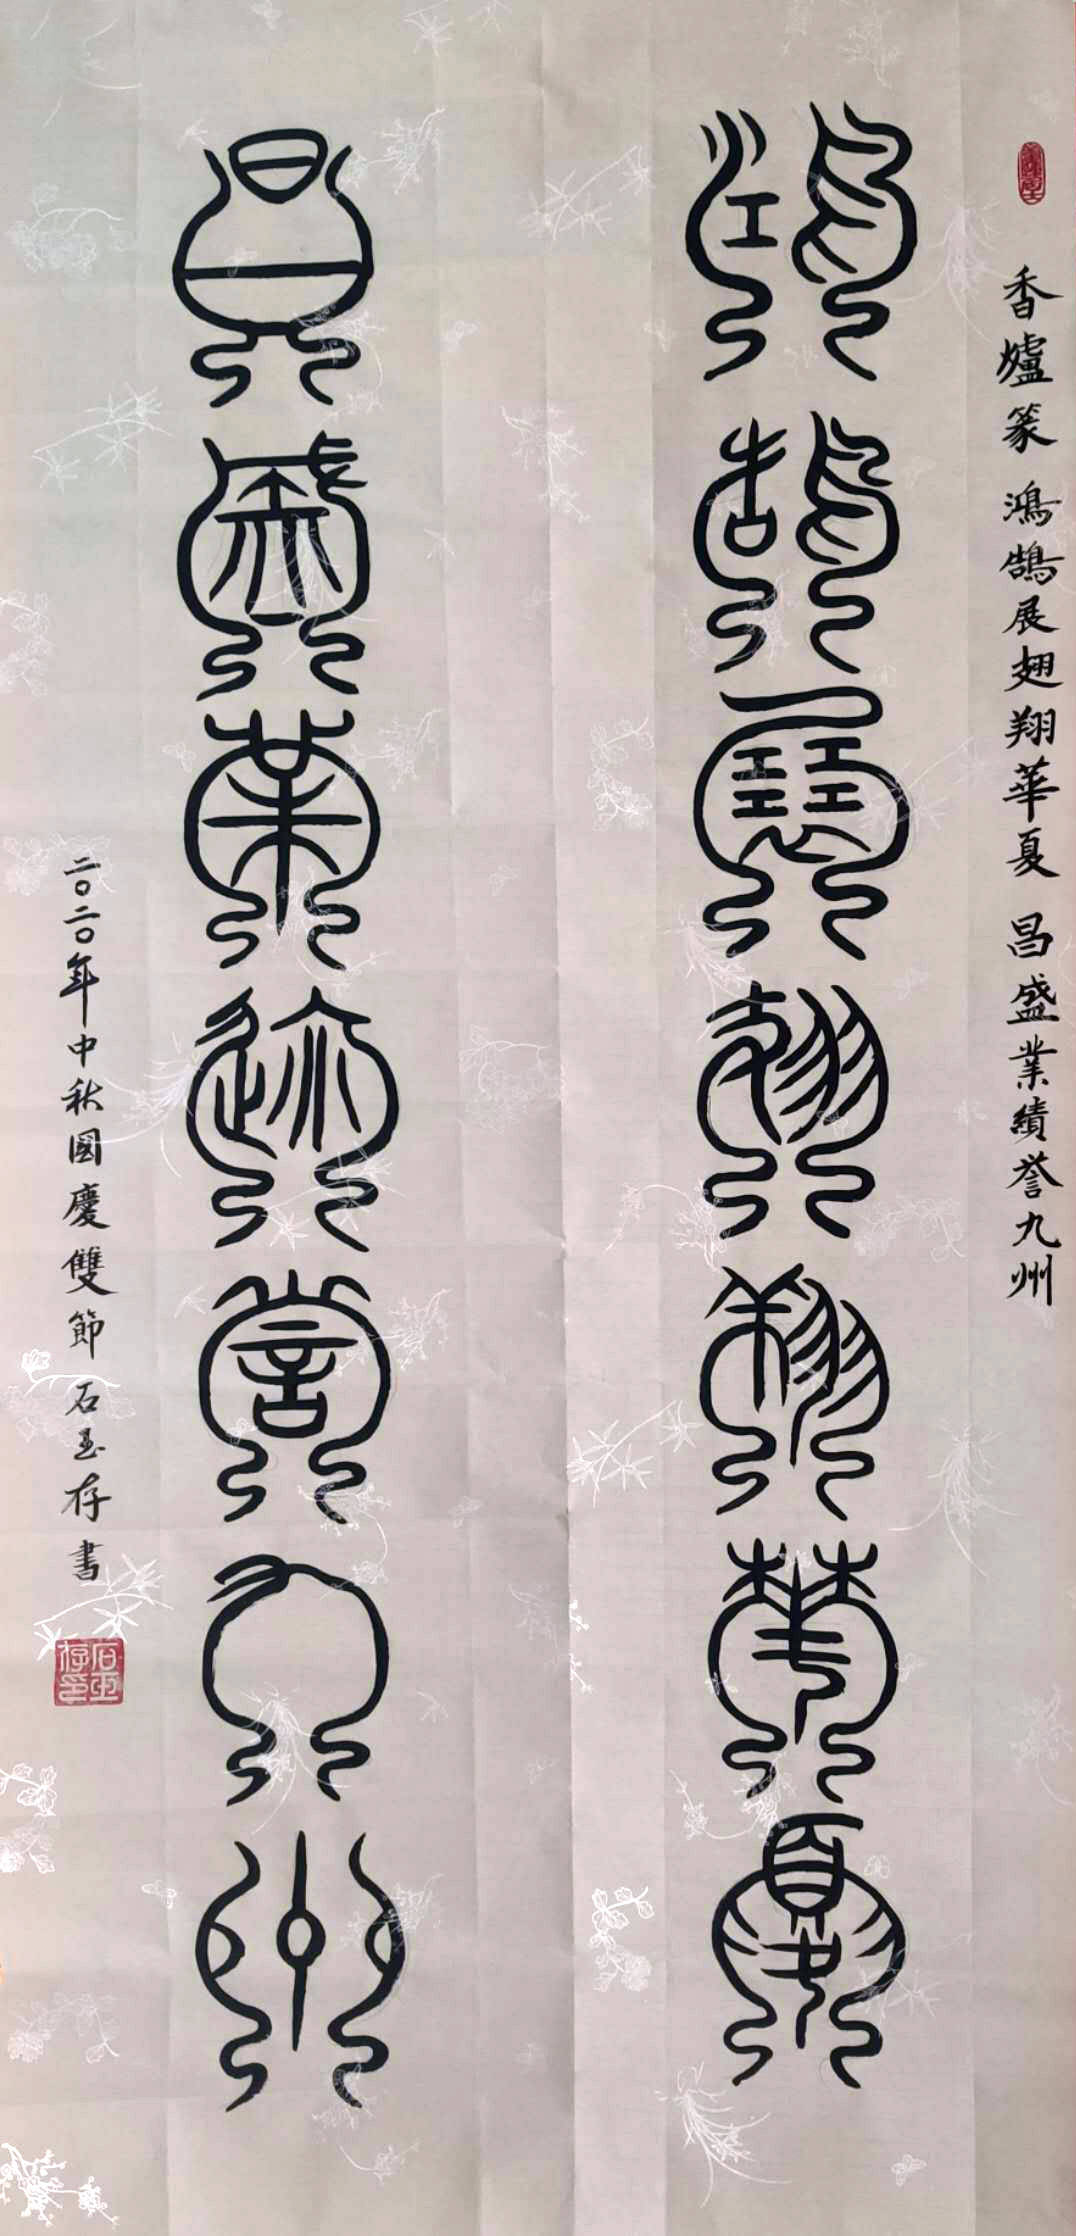 香爐篆 鴻鵠展翅翔華夏 昌盛業績誉九州
鴻鵠展翅翔華夏
昌盛業迹誉九州
二〇二〇年中秋國慶雙節 石玉存書
石玉存印